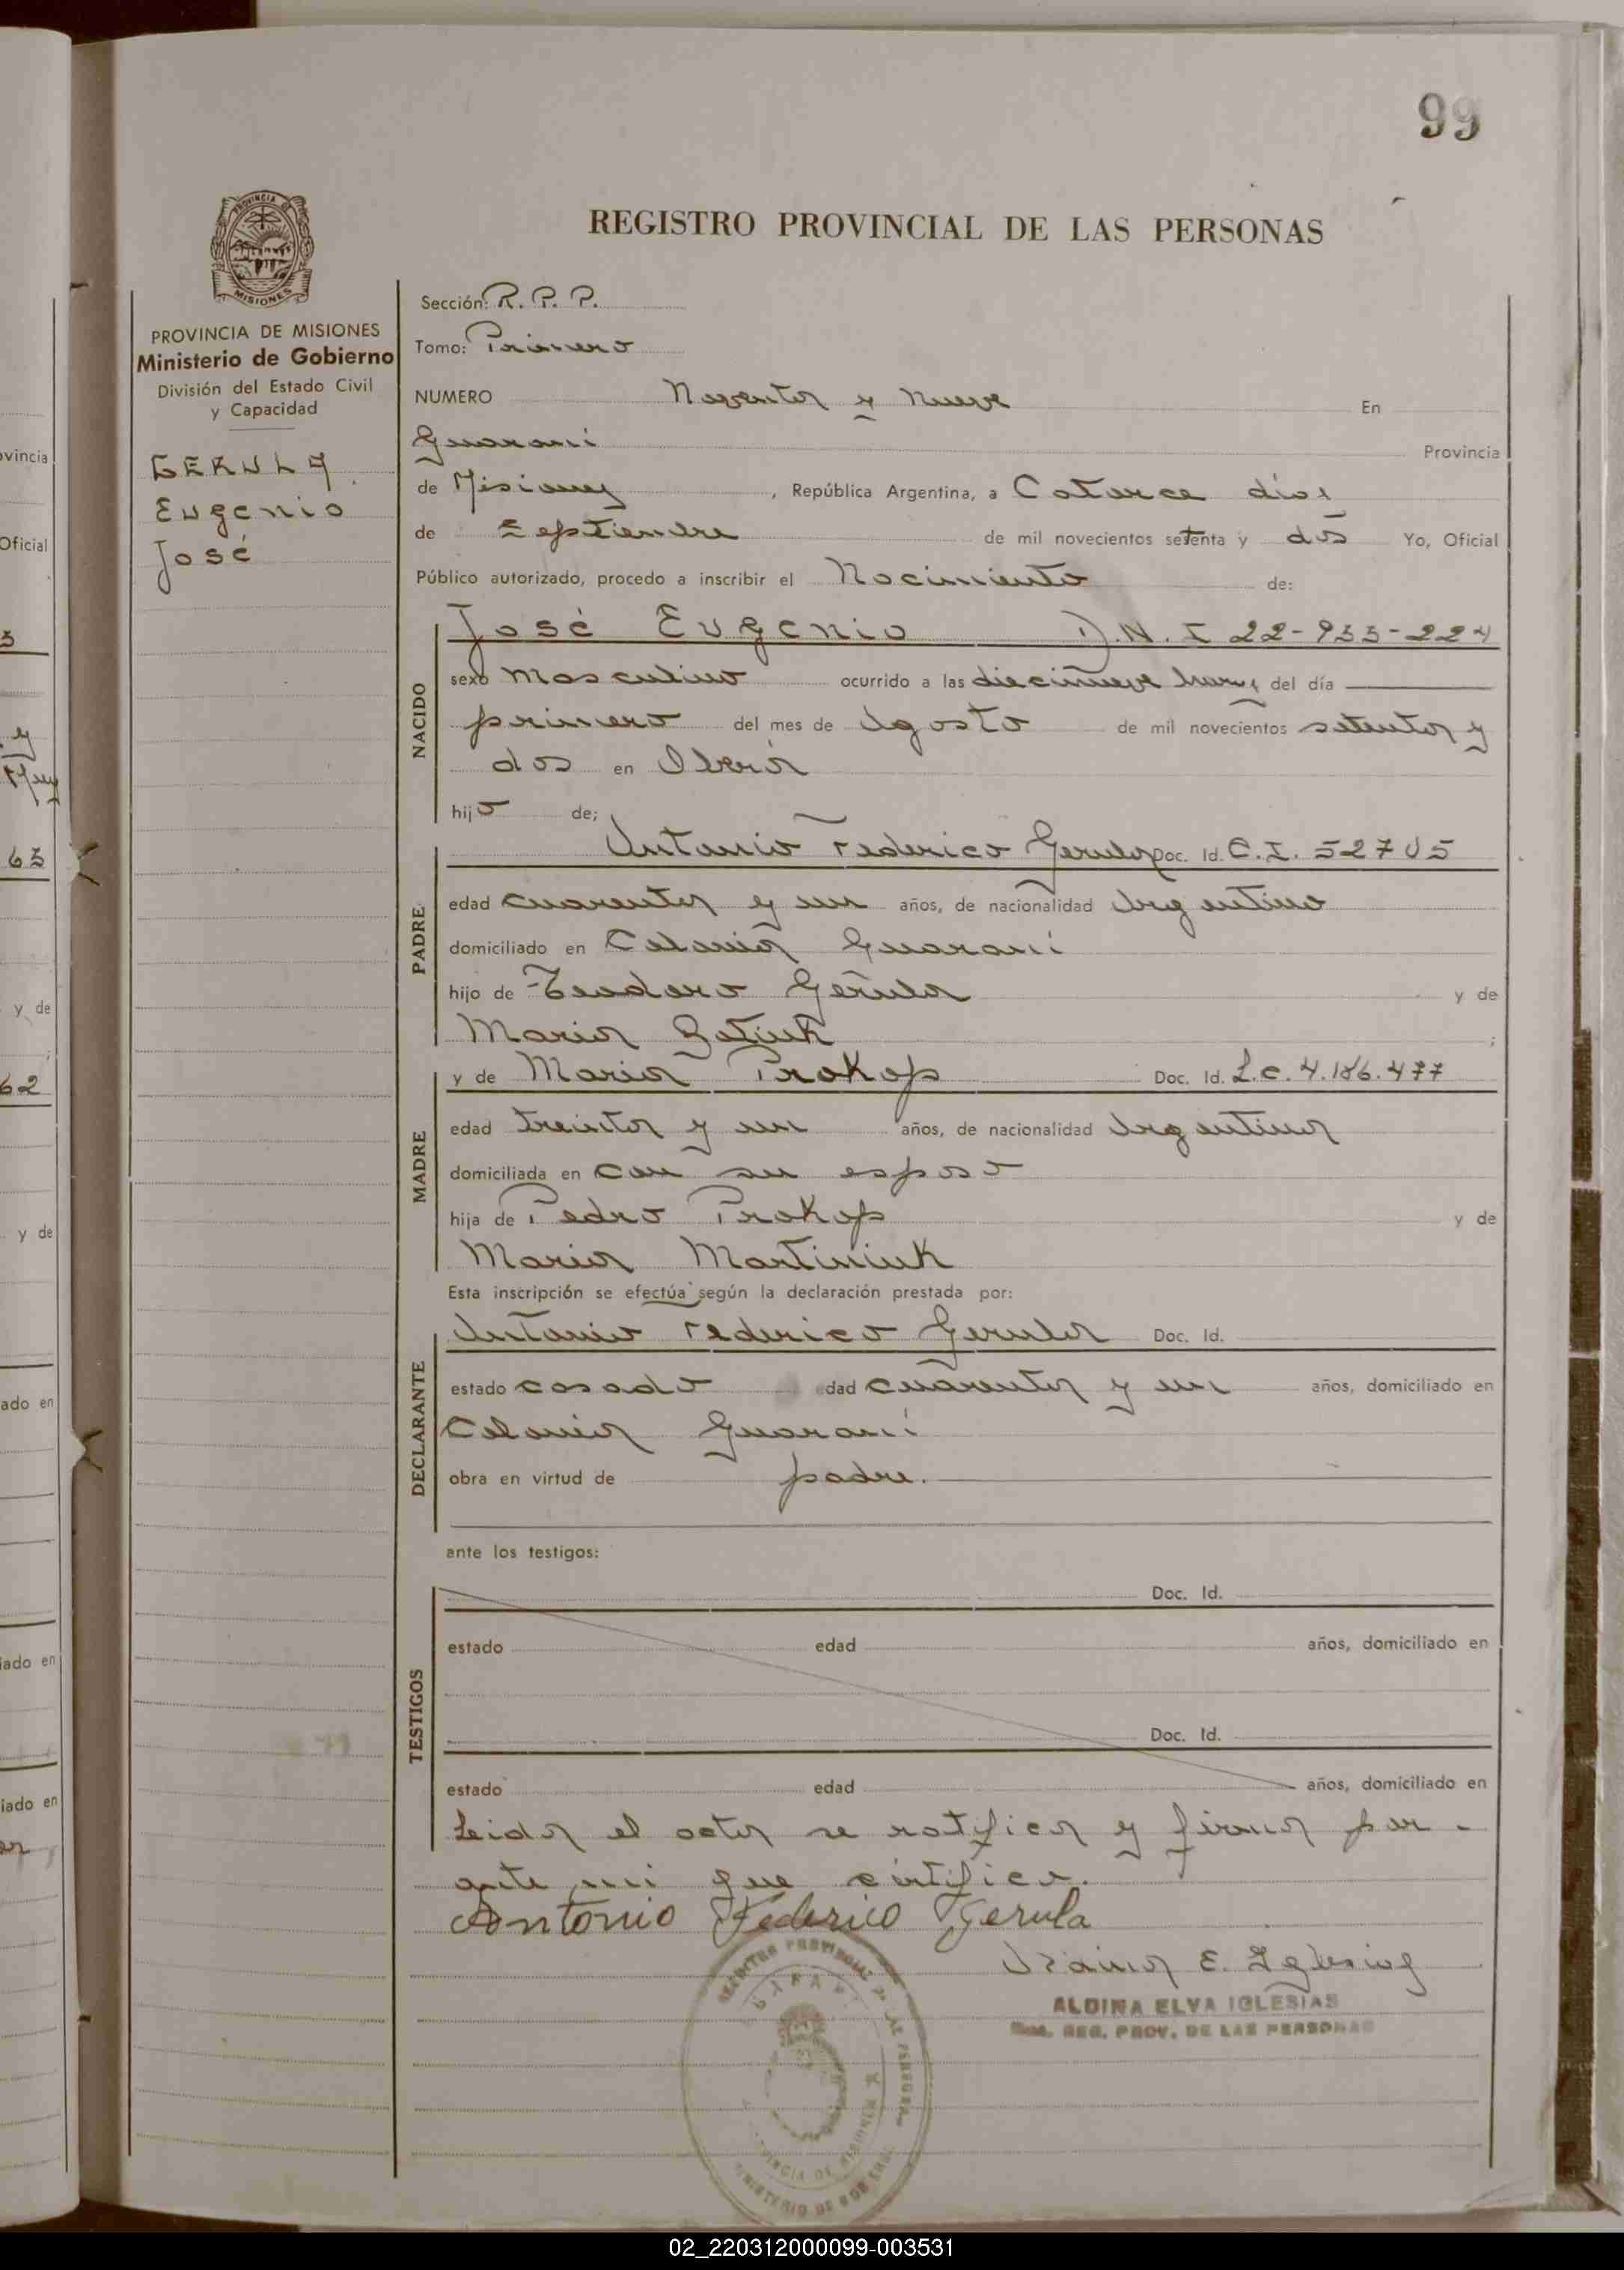 99
REGISTRO PROVINCIAL DE LAS PERSONAS
PROVINCIA DE
MISIONES
PROVINCIA DE MISIONES
Ministerio de Gobierno
División del Estado Civil
y Capacidad
GERULA
Eugenio
José
Sección: R. P. P.
Tomo: Primero
NUMERO Noventa y nueve En
Guaraní Provincia
de Misiones, República Argentina, a Catorce días
de Septiembre de mil novecientos setenta y dos Yo, Oficial
Público autorizado, procedo a inscribir el Nacimiento de:
NACIDO
José Eugenio D.N.I 22-933-224
sexo masculino ocurrido a las diecinueve horas del día
primero del mes de Agosto de mil novecientos setenta y
dos en Oberá
hijo de;
PADRE
Antonio Federico Gerula Doc. Id. C.I. 52705
edad cuarenta y un años, de nacionalidad Argentino
domiciliado en Colonia Guaraní
hijo de Teodoro Gerula y de
Maria
MADRE
y de Maria Prokop Doc. Id. L.C. 4.186.477
edad treinta y un años, de nacionalidad Argentina
domiciliada en con su esposo
hija de Pedro Prokop y de
Maria Martiniuk
Esta inscripción se efectúa según la declaración prestada por:
DECLARANTE
Antonio Federico Gerula Doc. Id.
estado casado edad cuarenta y un años, domiciliado en
Colonia Guaraní
obra en virtud de padre.
ante los testigos:
TESTIGOS
Doc. Id.
estado edad años, domiciliado en
Doc. Id.
estado edad años, domiciliado en
Leida el acta se ratifica y firma por
ante mi que certifico.
Antonio Federico Gerula
E. Iglesias
ALDINA ELVA IGLESIAS
REG. PROV. DE LAS PERSONAS
02_220312000099-003531